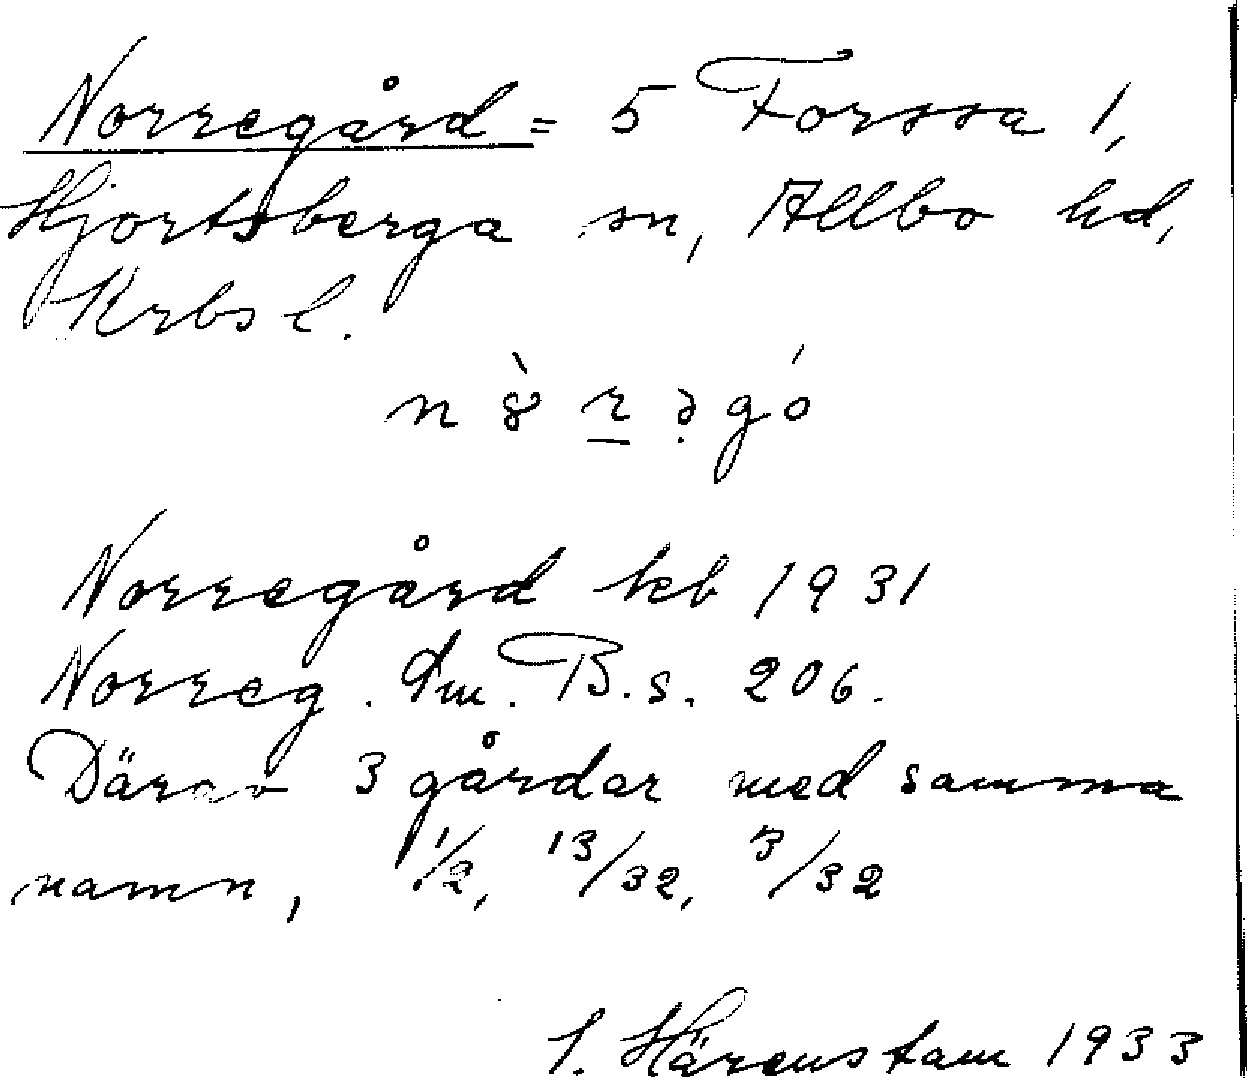 Norregård = 5 Forssa 1,
Hjortsberga sn, Allbo hd,
Krbs l.
Norregård kb 1931
Norreg. Jm. B. s. 206.
Därav 3 gårdar med samma
namn, 1/2, 13/32, 3/32
S. Härenstam 1933